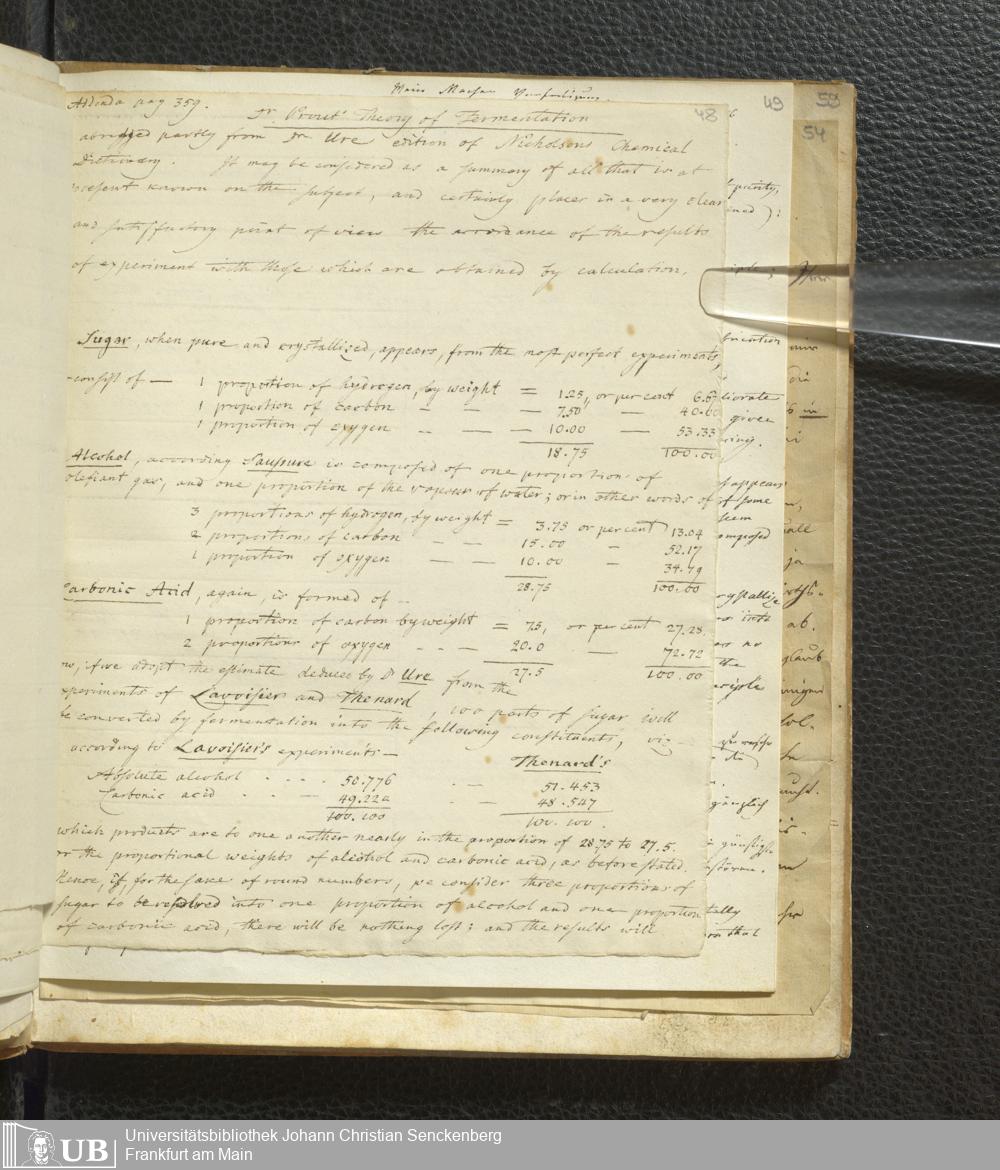 Addenda pag 359.
48
Dr. Prout' Theory of Fermentation
abridged partly from Dr Ure edition of Nicholsons Chemical
Dictionary. It may be considered as a summary of all that is at
present known on the subject, and certainly places in a very clear
and satisfactory point of view the accordance of the results
of experiment with those which are obtained by calculation.
Sugar, when pure and crystallized, appears, from the most perfect experiments,
consist of — 1 proportion of hydrogen, by weight = 1.25, or per cent 6.6
1 proportion of carbon — — — 7.50 — 40.00
1 proportion of oxygen — — — 10.00 — 53.33
18.75 100.00
Alcohol, according Saussure is composed of one proportion of
olefiant gas, and one proportion of the vapour of water; or in other words of
3 proportions of hydrogen, by weight = 3.75 or per cent 13.04
2 proportions of carbon — — 15.00 — 52.17
1 proportion of oxygen — — 10.00 — 34.79
28.75 100.00
Carbonic Acid, again, is formed of —
1 proportion of carbon by weight = 7.5, or per cent 27.28
2 proportions of oxygen - - - 20.0 — 72.72
27.5 100.00
now, if we adopt the estimate deduced by Dr Ure from the
experiments of Lavoisier and Thenard, 100 parts of sugar will
be converted by fermentation into the following constituents, viz —
according to Lavoisier's experiments — Thenard's
Absolute alcohol . - - . 50.776 . — 51.453
Carbonic acid . . — 49.224 - — 48.547
100.100 100.100.
which products are to one another nearly in the proportion of 28.75 to 27.5.
or the proportional weights of alcohol and carbonic acid, as before stated.
Hence, if, for the sake of round numbers, we consider three proportions of
sugar to be resolved into one proportion of alcohol and one proportion
of carbonic acid, there will be nothing lost; and the results will
49
58
54
purity,
given
appears
of some
seem
composed
crystallize
into
no
the
gänzlich
that
in
ja
ab.
UB
Universitätsbibliothek Johann Christian Senckenberg
Frankfurt am Main